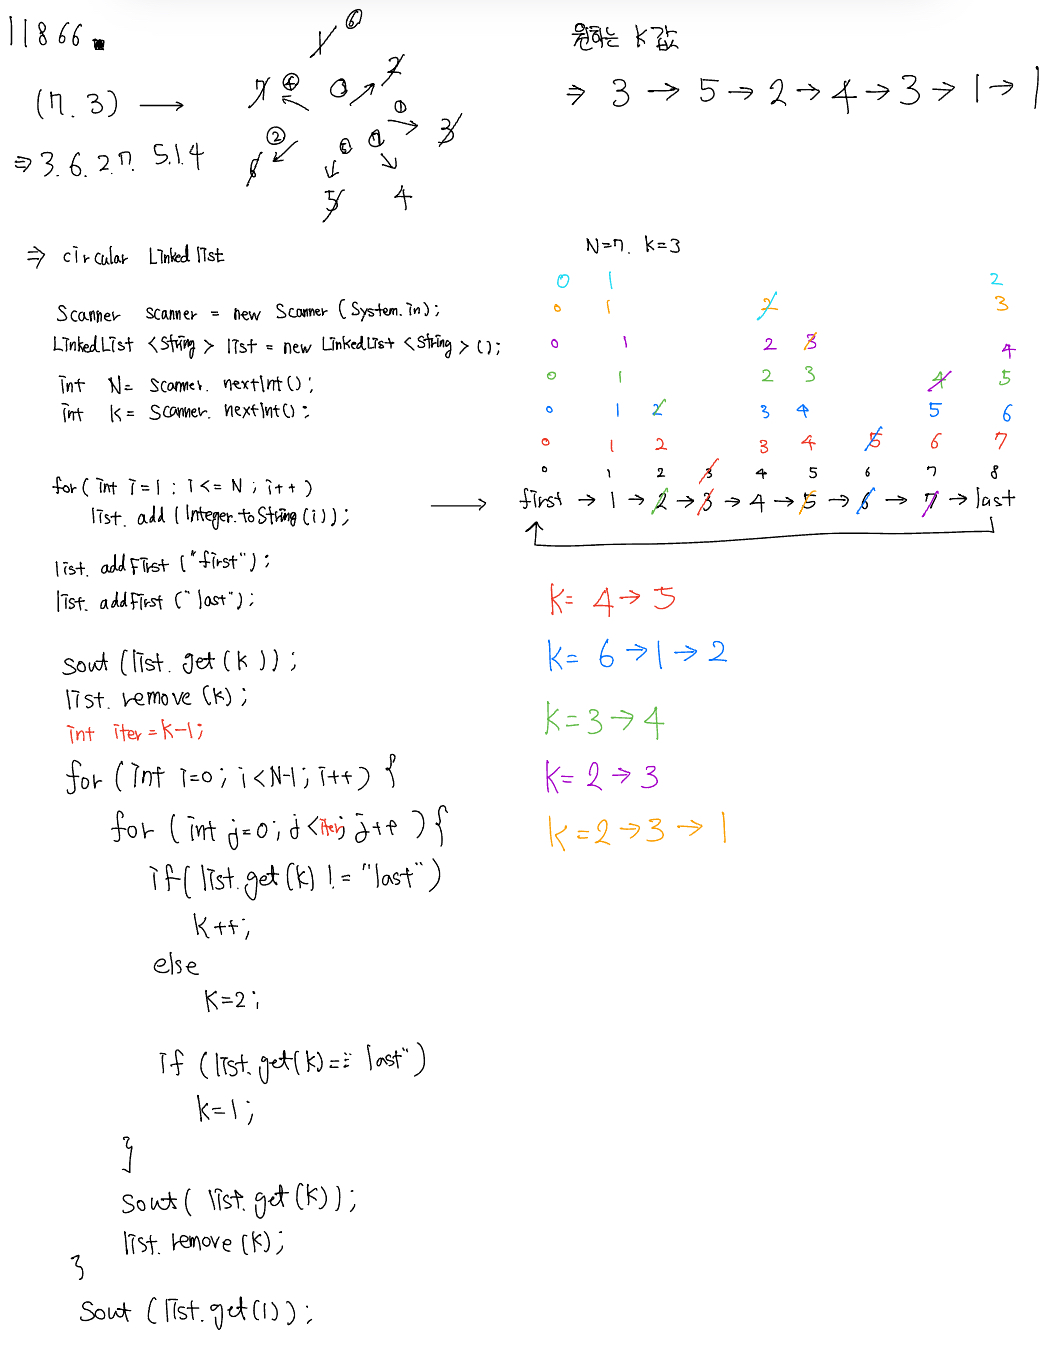 11866.
(7. 3) →
⇒ 3. 6. 2. 7. 5. 1. 4
1 ⑥
7 ④ ③ 2
① 3
6 ② ⑤ ⑦
5 4
원하는 K값
⇒ 3 → 5 → 2 → 4 → 3 → 1 → 1
⇒ circular Linked list
Scanner scanner = new Scanner (System.in);
LinkedList <String> list = new LinkedList <String> ();
int N = Scanner. nextInt();
int K = Scanner. nextInt();
for( int i=1 ; i <= N ; i++)
list. add (Integer.toString(i));
list. addFirst ("first");
list. addFirst ("last");
Sout (list. get(k));
list. remove (k);
int iter = k-1;
for (int i=0; i<N-1; i++) {
for (int j=0; j<iter; j++ ) {
if( list.get(k) != "last")
K++;
else
K=2;
if (list.get(k) == "last")
K=1;
}
Sout( list.get(k));
list. remove (k);
}
Sout (list.get(1));
N=7. K=3
0 1 2
0 1 2 3
0 1 2 3 4
0 1 2 3 4 5
0 1 2 3 4 5 6
0 1 2 3 4 5 6 7
0 1 2 3 4 5 6 7 8
→ first → 1 → 2 → 3 → 4 → 5 → 6 → 7 → last
K= 4 → 5
K= 6 → 1 → 2
K= 3 → 4
K= 2 → 3
K= 2 → 3 → 1